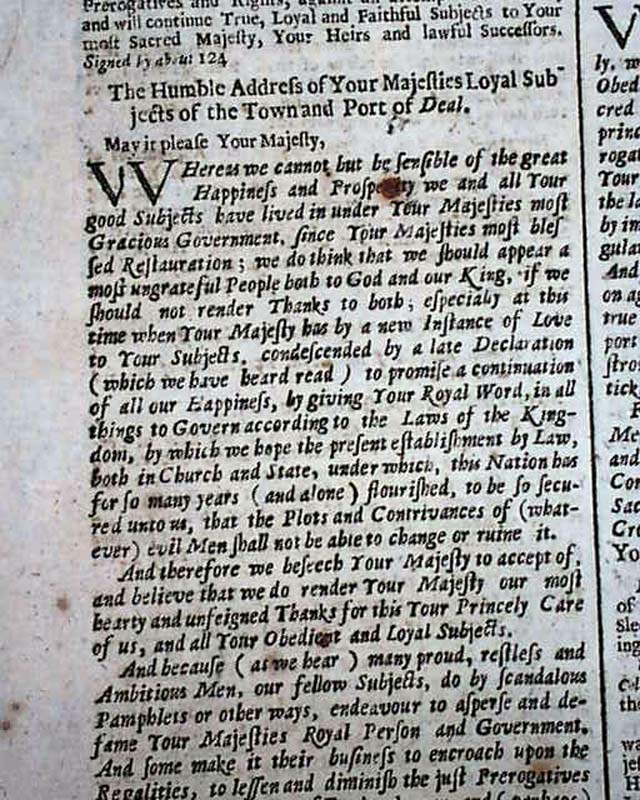 Prerogatives and Rights, against
and will continue True, Loyal and Faithful Subjects to Your
most Sacred Majeſty, Your Heirs and lawful Succeſſors.
Signed by about 124
The Humble Addreſs of Your Majeſties Loyal Sub-
jects of the Town and Port of Deal.
May it pleaſe Your Majeſty,
WHereas we cannot but be ſenſible of the great
Happineſs and Proſperity we and all Your
good Subjects have lived in under Your Majeſties moſt
Gracious Government, ſince Your Majeſties moſt bleſ
ſed Reſtauration; we do think that we ſhould appear a
moſt ungrateful People both to God and our King, if we
ſhould not render Thanks to both; eſpecialy at this
time when Your Majeſty has by a new Inſtance of Love
to Your Subjects, condeſcended by a late Declaration
(which we have heard read) to promiſe a continuation
of all our Happineſs, by giving Your Royal Word, in all
things to Govern according to the Laws of the King-
dom, by which we hope the preſent eſtabliſhment by Law,
both in Church and State, under which, this Nation has
for ſo many years (and alone) flouriſhed, to be ſo ſecu-
red unto us, that the Plots and Contrivances of (what-
ever) evil Men ſhall not be able to change or ruine it.
And therefore we beſeech Your Majeſty to accept of,
and believe that we do render Your Majeſty our moſt
hearty and unfeigned Thanks for this Your Princely Care
of us, and all Your Obedient and Loyal Subjects.
And becauſe (as we hear) many proud, reſtleſs and
Ambitious Men, our fellow Subjects, do by ſcandalous
Pamphlets or other ways, endeavour to aſperſe and de-
fame Your Majeſties Royal Perſon and Government.
And ſome make it their buſineſs to encroach upon the
Regalities, to leſſen and diminiſh the juſt Prerogatives
ly, w
Obed
cred
princ
rogat
Your
the la
by im
gular
And
on ag
true
port
ſtro
tick
Me
and
Con
Sac
Cro
Yo
of
ſle
ing
the
wa
jeſ